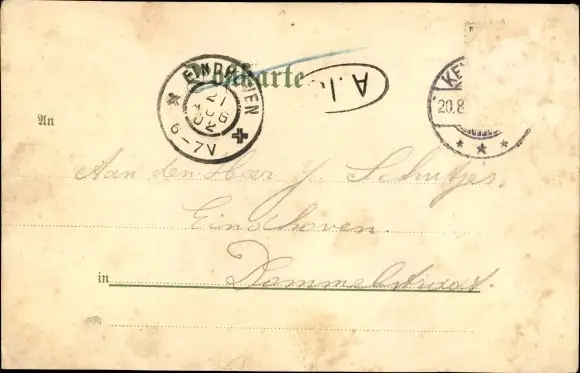 Postkarte
EINDHOVEN
21 AUG 02
6-7V
A.I.
KE
20.8
An
Aan den Heer J. Schutjes.
Eindhoven.
in Dommelstraat.